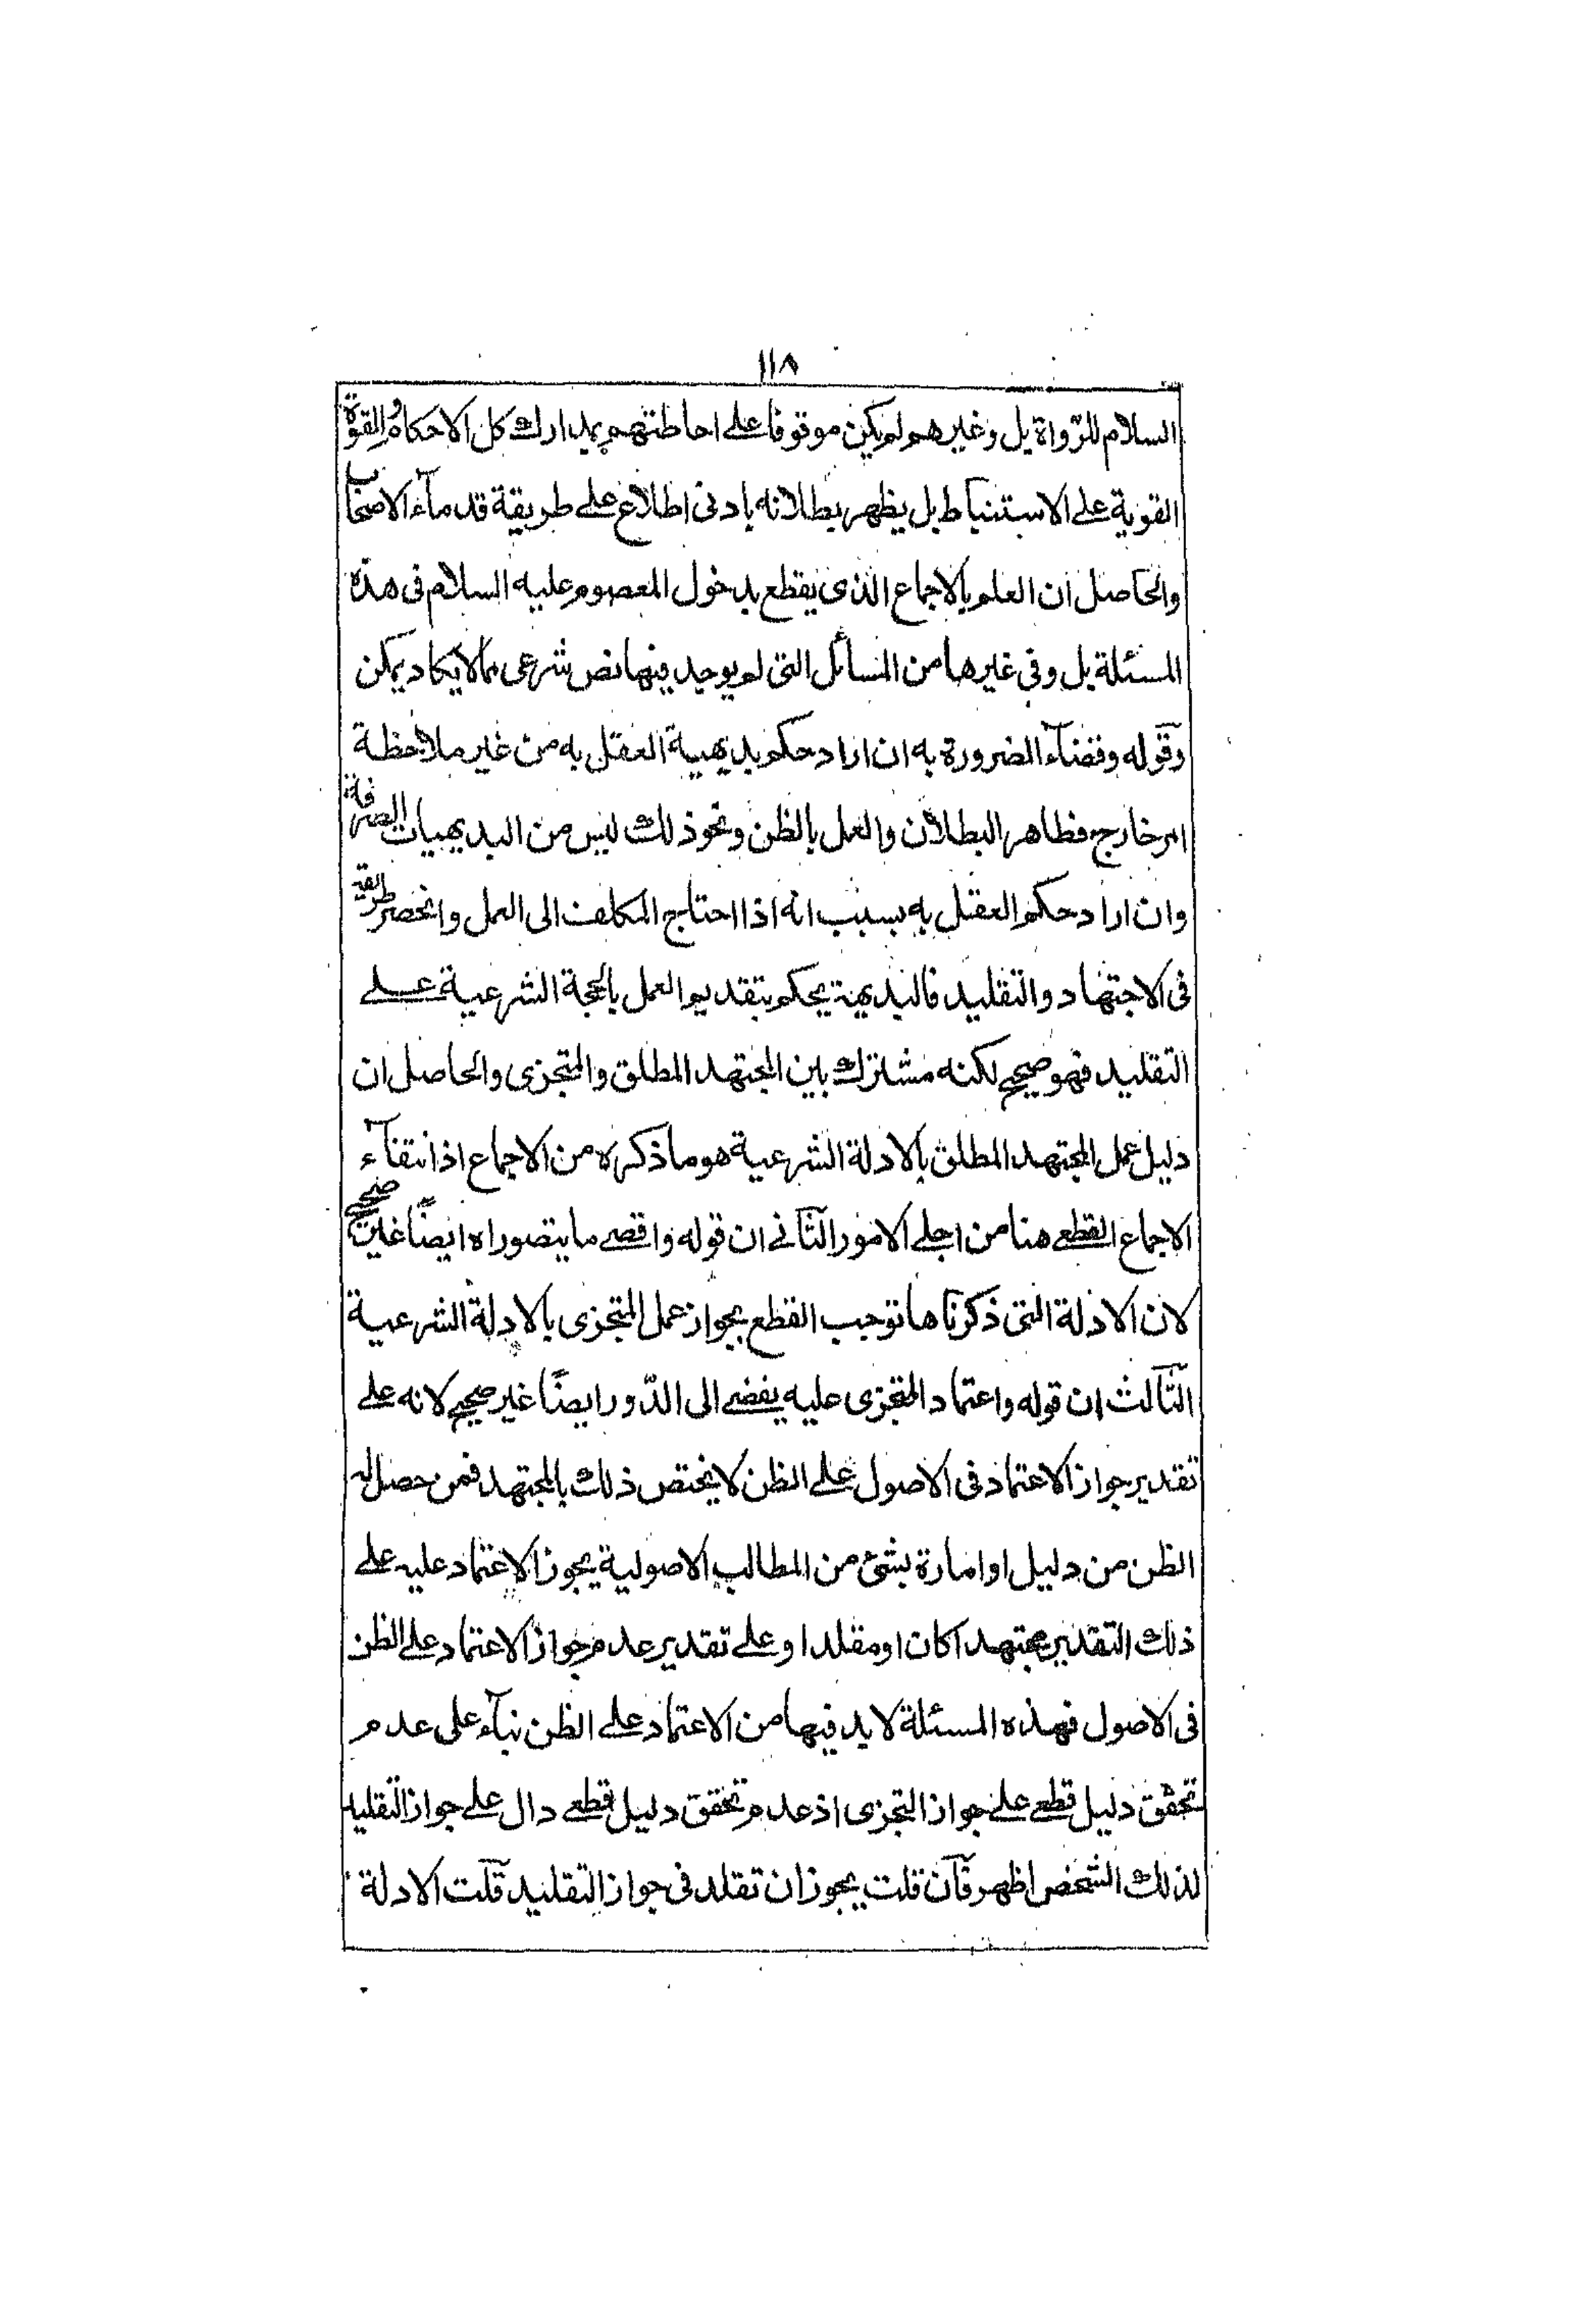 ١١٨
السلام للرّواة بل وغيرهم لم يكن موقوفا على احاطتهم بمدارك كل الاحكام والقوة
القوية على الاستنباط بل يظهر بطلانه بادنى اطلاع على طريقة قدمآء الاصحاب
والحاصل ان العلم بالاجماع الذى يقطع بدخول المعصوم عليه السلام فى هذه
المسئلة بل وفى غيرها من المسائل التى لم يوجد فيها نص شرعى مما لا يكاد يمكن
وقوله وقضآء الضرورة به ان اراد حكم بديهية العقل به من غير ملاحظة
امر خارج فظاهر البطلان والعمل بالظن ونحو ذلك ليس من البديهيات الصرفة
وان اراد حكم العقل به بسبب انه اذا احتاج المكلف الى العمل وانحصر طريقه
فى الاجتهاد والتقليد فالبديهة يحكم بتقديم العمل بالحجة الشرعية على
التقليد فهو صحيح لكنه مشترك بين المجتهد المطلق والمتجزى والحاصل ان
دليل عمل المجتهد المطلق بالادلة الشرعية هو ما ذكره من الاجماع اذ انتفآء
الاجماع القطعى هنا من اجلى الامور الثانى ان قوله واقصى ما يتصور اه ايضًا غير صحيح
لان الادلة التى ذكرناها توجب القطع بجواز عمل المتجزى بالادلة الشرعية
الثالث ان قوله واعتماد المتجزى عليه يفضى الى الدّور ايضًا غير صحيح لانه على
تقدير جواز الاعتماد فى الاصول على الظن لا يختص ذلك بالمجتهد فمن حصل له
الظن من دليل او امارة بشئ من المطالب الاصولية يجوز الاعتماد عليه على
ذلك التقدير مجتهدا كان او مقلدا وعلى تقدير عدم جواز الاعتماد على الظن
فى الاصول فهذه المسئلة لا بد فيها من الاعتماد على الظن بنآء على عدم
تحقق دليل قطعى على جواز التجزى اذ عدم تحقق دليل قطعى دال على جواز التقليد
لذلك الشخص اظهر فآن قلت يجوز ان تقلد فى جواز التقليد قلت الادلة